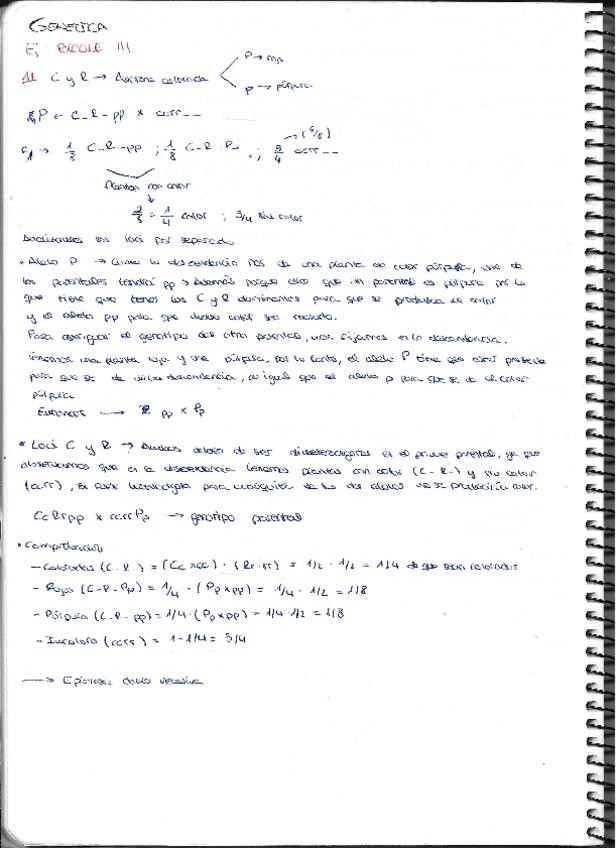 GENETICA
Ej BLOQUE III
11 C y R → Aleurona colorada
P → roja
p → púrpura
P → C_R_pp × ccrr__
F1 → 1/8 C_R_pp ; 1/8 C_R_P_ ; 3/4 ccrr__
→ (6/8)
Plantas con color
2/8 = 1/4 color ; 3/4 sin color
Analizamos los loci por separado
• Alelo P → Como la descendencia nos da una planta de color púrpura, uno de
los parentales tendrá pp → Además porque dice que un parental es púrpura por lo
que tiene que tener los C y R dominantes para que se produzca el color
y el alelo pp para que dicho color sea
Para averiguar el genotipo del otro parental, nos fijamos en la descendencia.
Tenemos una planta roja y una púrpura, por lo tanto, el alelo P tiene que estar presente
para que se de dicha descendencia, al igual que el alelo p para que se de el color
púrpura
Entonces → pp × Pp
• Loci C y R → Ambos deben de ser en el primer parental, ya que
observamos que en la descendencia tenemos plantas con color (C-R-) y sin color
(ccrr), si fuese homocigota para cualquiera de los dos alelos no se produciría
CcRrpp × ccrrPp → genotipo parental
• Comprobación
- Coloreadas (C-R-) = (Cc×cc) · (Rr·rr) = 1/2 · 1/2 = 1/4 de que sean coloreadas
- Rojas (C-R-P_) = 1/4 · (Pp×pp) = 1/4 · 1/2 = 1/8
- Púrpura (C-R-pp) = 1/4 · (Pp×pp) = 1/4 · 1/2 = 1/8
- Incoloro (ccrr) = 1-1/4 = 3/4
→ Epistasis doble recesiva